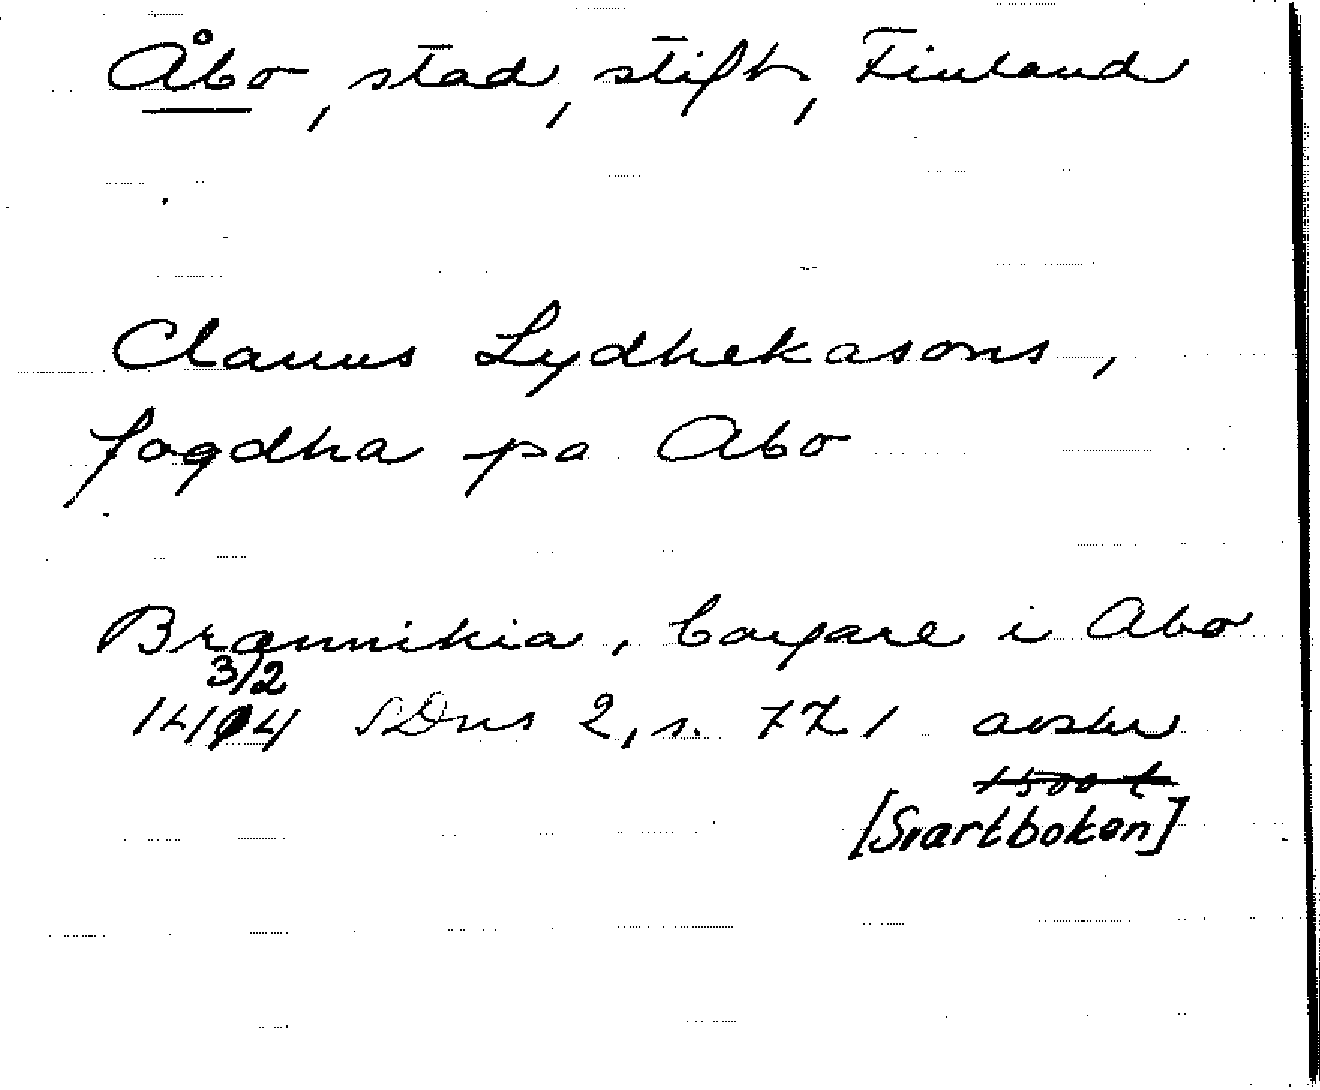 Åbo, stad, stift, Finland
Clauus Lydhekasons,
fogdha pa Abo
Brannikia, borgare i Abo
3/2
1414 SDns 2, s. 771 avskr
1500 t
[Svartboken]